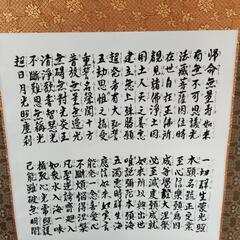 歸命無量壽如来
南無不可思議光
法蔵菩薩因位時
在世自在王佛所
覩見諸佛淨土因
國土人天之善惡
建立無上殊勝願
超發希有大弘誓
五劫思惟之攝受
重誓名聲聞十方
普放無量無邊光
無碍無對光炎王
清淨歡喜智慧光
不斷難思無稱光
超日月光照塵刹
一切群生蒙光照
本願名号正定業
至心信樂願為因
成等覺證大涅槃
必至滅度願成就
如来所以興出世
唯說弥陀本願海
五濁惡時群生海
應信如来如實言
能發一念喜愛心
不斷煩惱得涅槃
凡聖逆謗齊廻入
如衆水入海一味
攝取心光常照護
已能雖破無明闇